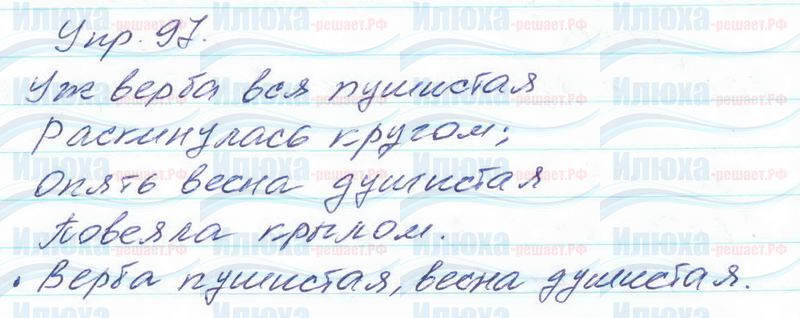 Упр. 97.
Уж верба вся пушистая
Раскинулась кругом;
Опять весна душистая
Повеяла крылом.
• Верба пушистая, весна душистая.